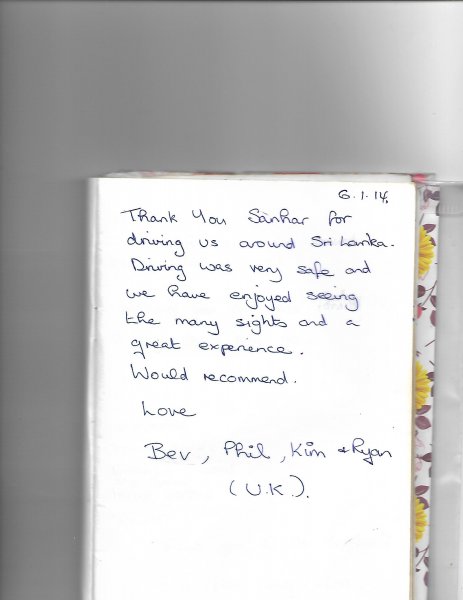 6.1.14.
Thank You Sankar for
driving us around Sri Lanka.
Driving was very safe and
we have enjoyed seeing
the many sights and a
great experience.
Would recommend.
Love
Bev, Phil, Kim & Ryan
(U.K.).